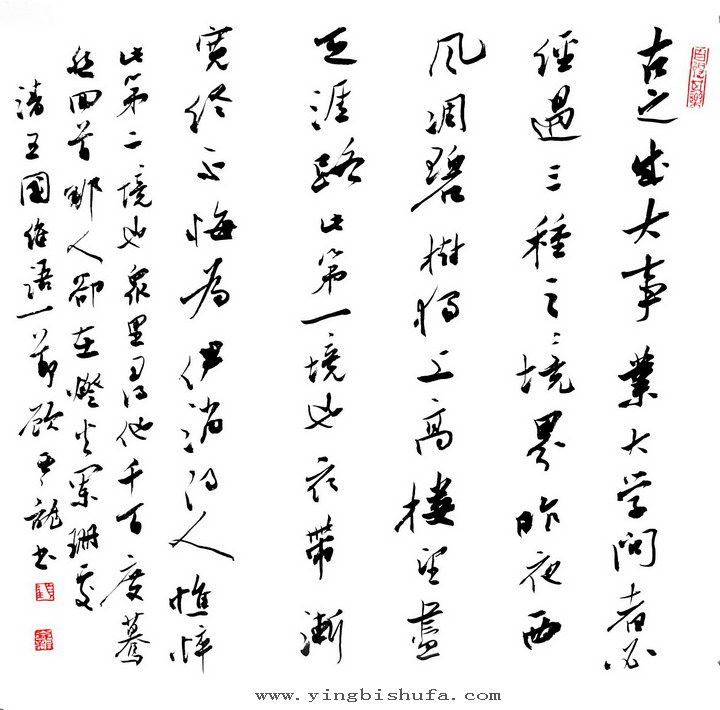 古之成大事業大学問者必
經過三種之境界昨夜西
風凋碧樹獨上高樓望盡
天涯路此第一境也衣帶漸
寬終不悔為伊消得人憔悴
此第二境也衆里尋他千百度驀
然回首那人卻在燈火闌珊處
清王國維語一節顧龍書
www.yingbishufa.com